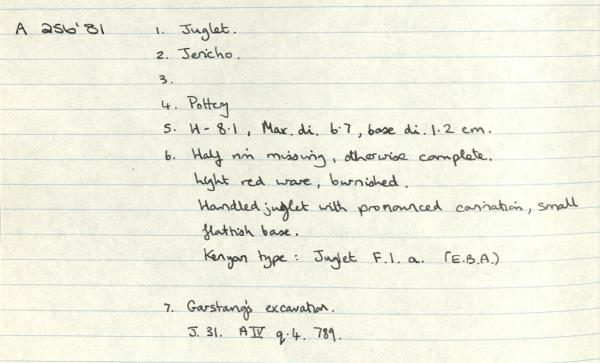 A 256'81
1. Juglet.
2. Jericho.
3.
4. Pottery
5. H - 8.1, Max. di. 6.7, base di. 1.2 cm.
6. Half rim missing, otherwise complete.
Light red ware, burnished.
Handled juglet with pronounced carination, small
flattish base.
Kenyon type: Juglet F.1. a. (E.B.A.)
7. Garstang's excavation.
J. 31. A IV q.4. 789.